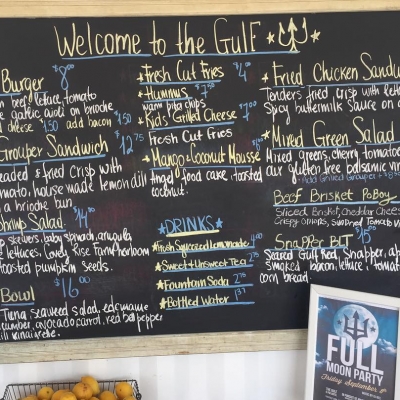 Welcome to the Gulf
Burger 8
beef, lettuce, tomato
garlic aioli on brioche
cheese 1.50 add bacon 1.50
Grouper Sandwich 12.75
Breaded & fried crisp with
tomato, house made lemon dill
on brioche bun
Shrimp Salad 14
skewers, baby spinach, arugula
lettuces, lovely Rise Farm heirloom
toasted pumpkin seeds.
Bowl 16
Tuna, seaweed salad, edamame
cucumber, avocado, carrot, red bell pepper
vinaigrette
Fresh Cut Fries 4
Hummus 7
warm pita chips
Kids Grilled Cheese 7
Fresh Cut Fries
Mango & Coconut Mousse
Angel food cake, toasted
coconut.
DRINKS
Fresh Squeezed Lemonade
Sweet & Unsweet Tea
Fountain Soda
Bottled Water
Fried Chicken Sandw
Tenders fried crisp with lett
Spicy buttermilk sauce on
Mixed Green Salad
Mixed greens, cherry tomatoe
our gluten free balsamic vin
Add Grilled Grouper
Beef Brisket PoBoy
Sliced Brisket, cheddar Cheese
Crispy onions, Sundried Tomato
Snapper BLT 15
Seared Gulf Red Snapper, ap
smoked bacon, lettuce, tomat
corn bread.
FULL
MOON PARTY
Friday, September